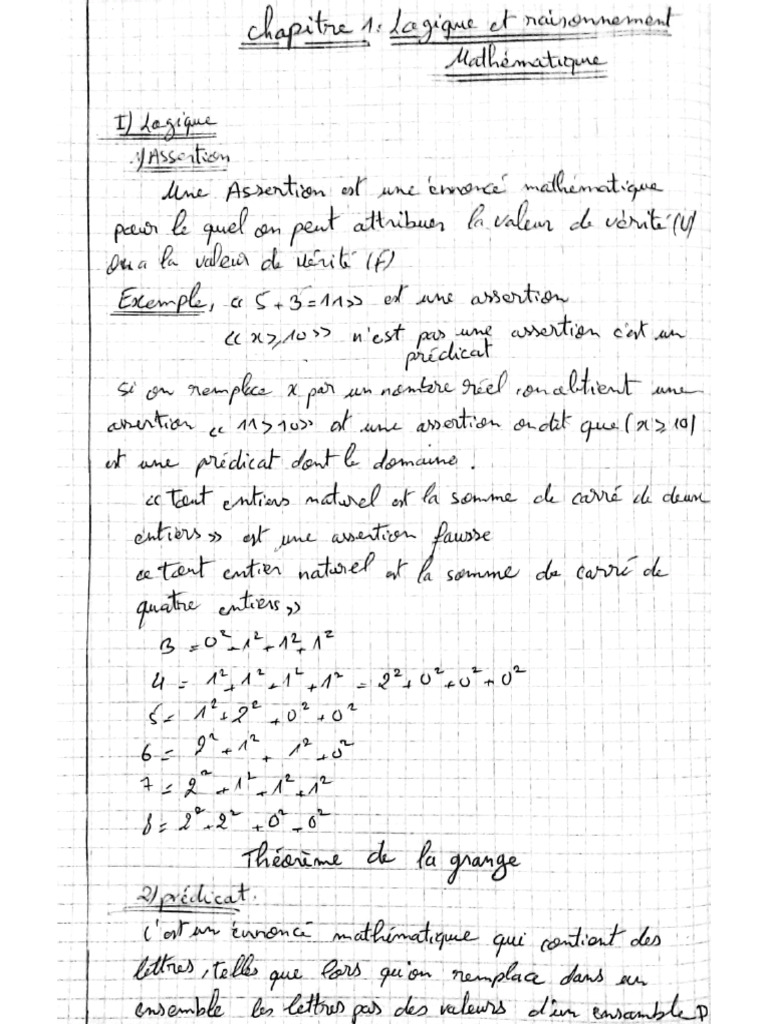 Chapitre 1: Logique et raisonnement
Mathématique
I) Logique
1) Assertion
Une Assertion est une énnoncé mathématique
pour le quel on peut attribuer la valeur de vérité (V)
Ou a la valeur de vérité (F)
Exemple, << 5 + 3 = 11 >> est une assertion
<< x ≥ 10 >> n'est pas une assertion c'est un
prédicat
si on remplace x par un nombre réel, on abtient une
assertion << 11 ≥ 10 >> est une assertion on dit que (x ≥ 10)
est une prédicat dont le domaine.
<< Tout entiers naturel est la somme de carré de deux
entiers >> est une assertion fausse
<< Tout entier naturel est la somme de carré de
quatre entiers >>
3 = 0² + 1² + 1² + 1²
4 = 1² + 1² + 1² + 1² = 2² + 0² + 0² + 0²
5 = 1² + 2² + 0² + 0²
6 = 2² + 1² + 1² + 0²
7 = 2² + 1² + 1² + 1²
8 = 2² + 2² + 0² + 0²
Théorème de la grange
2) prédicat.
c'est un énnoncé mathématique qui contient des
lettres, telles que lors qu'on remplace dans un
ensemble les lettres pas des valeurs d'un ensamble P